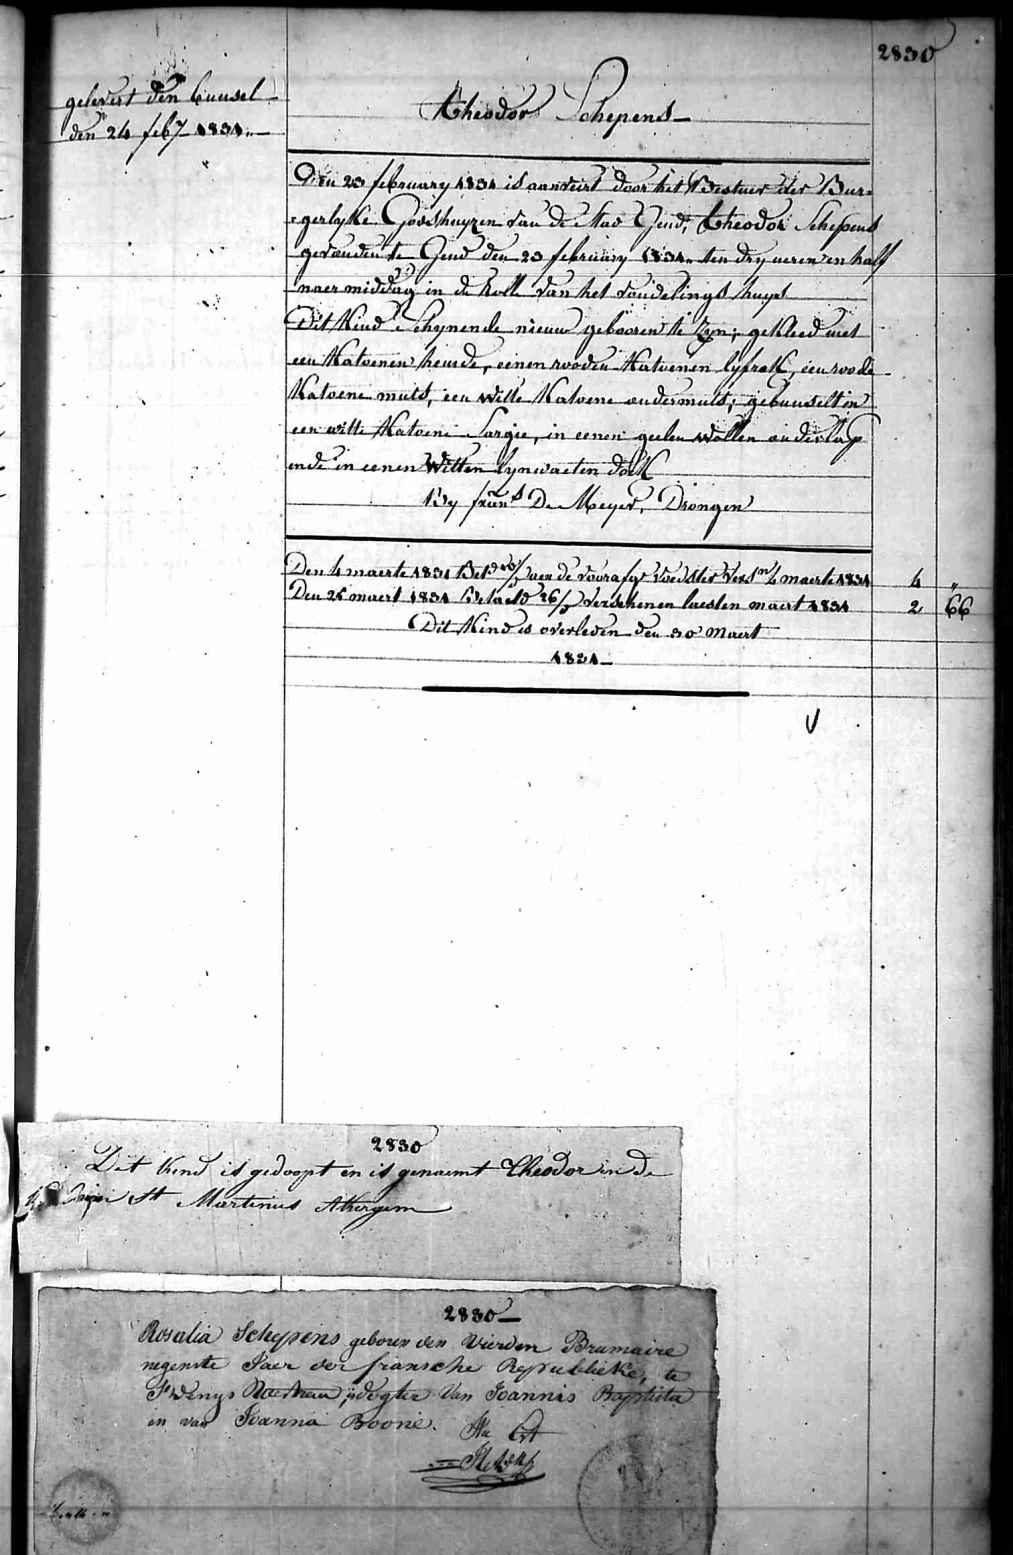 2830
gelevert den buusel
den 24 feb7 1831.
Theodor Schepens
Den 23 february 1831 is aanveirt door het Bestuer der Bur=
=gerlyke Godshuyzen van de Stad Gend, Theodor Schepens
gevonden te Gend den 23 february 1831. ten dry ueren en half
naer middag in de Rolle van het vondelings huys
Dit Kind Schynende nieuw gebooren te Zyn; gekleed met
een Katoenen hemde, eenen rooden Katoenen lyfrok, een roode
Katoene muts, een witte Katoene ondermuts; gebuuselt in
een witte Katoene Sargie, in eenen geelen wollen onderlap
ende in eenen Witten lynwaeten doek
By frans De Meyer, Drongen
Den 4 maerte 1831 Bet aen de voorafge voedster vers 4 maerte 1831 4 "
Den 25 maert 1831 betaeld 26/ verschenen laesten maert 1831 2 66
Dit Kind is overleden den 30 Maert
1831
V
2830
Dit Kind is gedoopt en is genaemt Theodor in de
St Martinus Akergem
2830
Rosalia Schepens geboren den Vierden Brumaire
negenste Jaer der fransche Republieke, te
St denys dogter Van Joannis Baptista
en van Joanna Boone.